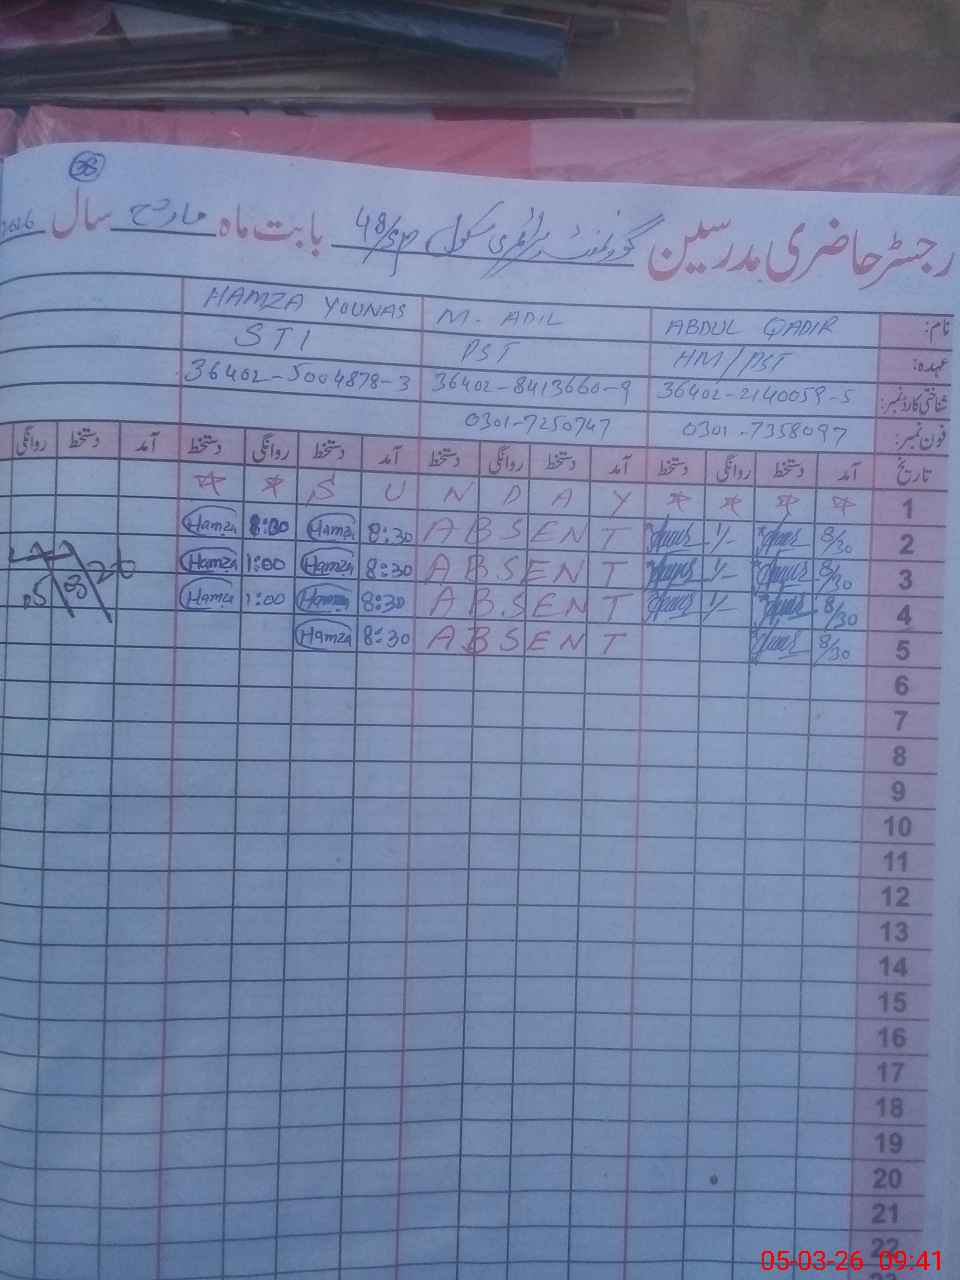 38
رجسٹر حاضری مدرسین گورنمنٹ پرائمری سکول 48/SP بابت ماہ مارچ سال 2026
نام: ABDUL QADIR M. ADIL HAMZA YOUNAS
عہدہ: HM/PST PST STI
شناختی کارڈ نمبر: 36402-2140059-5 36402-8413660-9 36402-5004878-3
فون نمبر: 0301-7358097 0301-7250747
تاریخ آمد دستخط روانگی دستخط آمد دستخط روانگی دستخط آمد دستخط روانگی دستخط آمد دستخط روانگی
1 S U N D A Y
2 8/30 1/- ABSENT 8:30 Hamza Hamza
3 8/30 1/- ABSENT 8:30 Hamza 1:00 Hamza
4 8/30 1/- ABSENT 8:30 Hamza 1:00 Hamza
5 8/30 ABSENT 8:30 Hamza
6
7
8
9
10
11
12
13
14
15
16
17
18
19
20
21
22
05-03-26 09:41